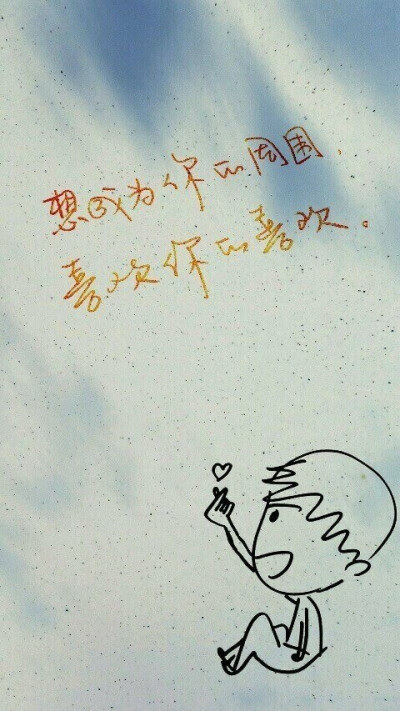 想成为你的周围.
喜欢你的喜欢.